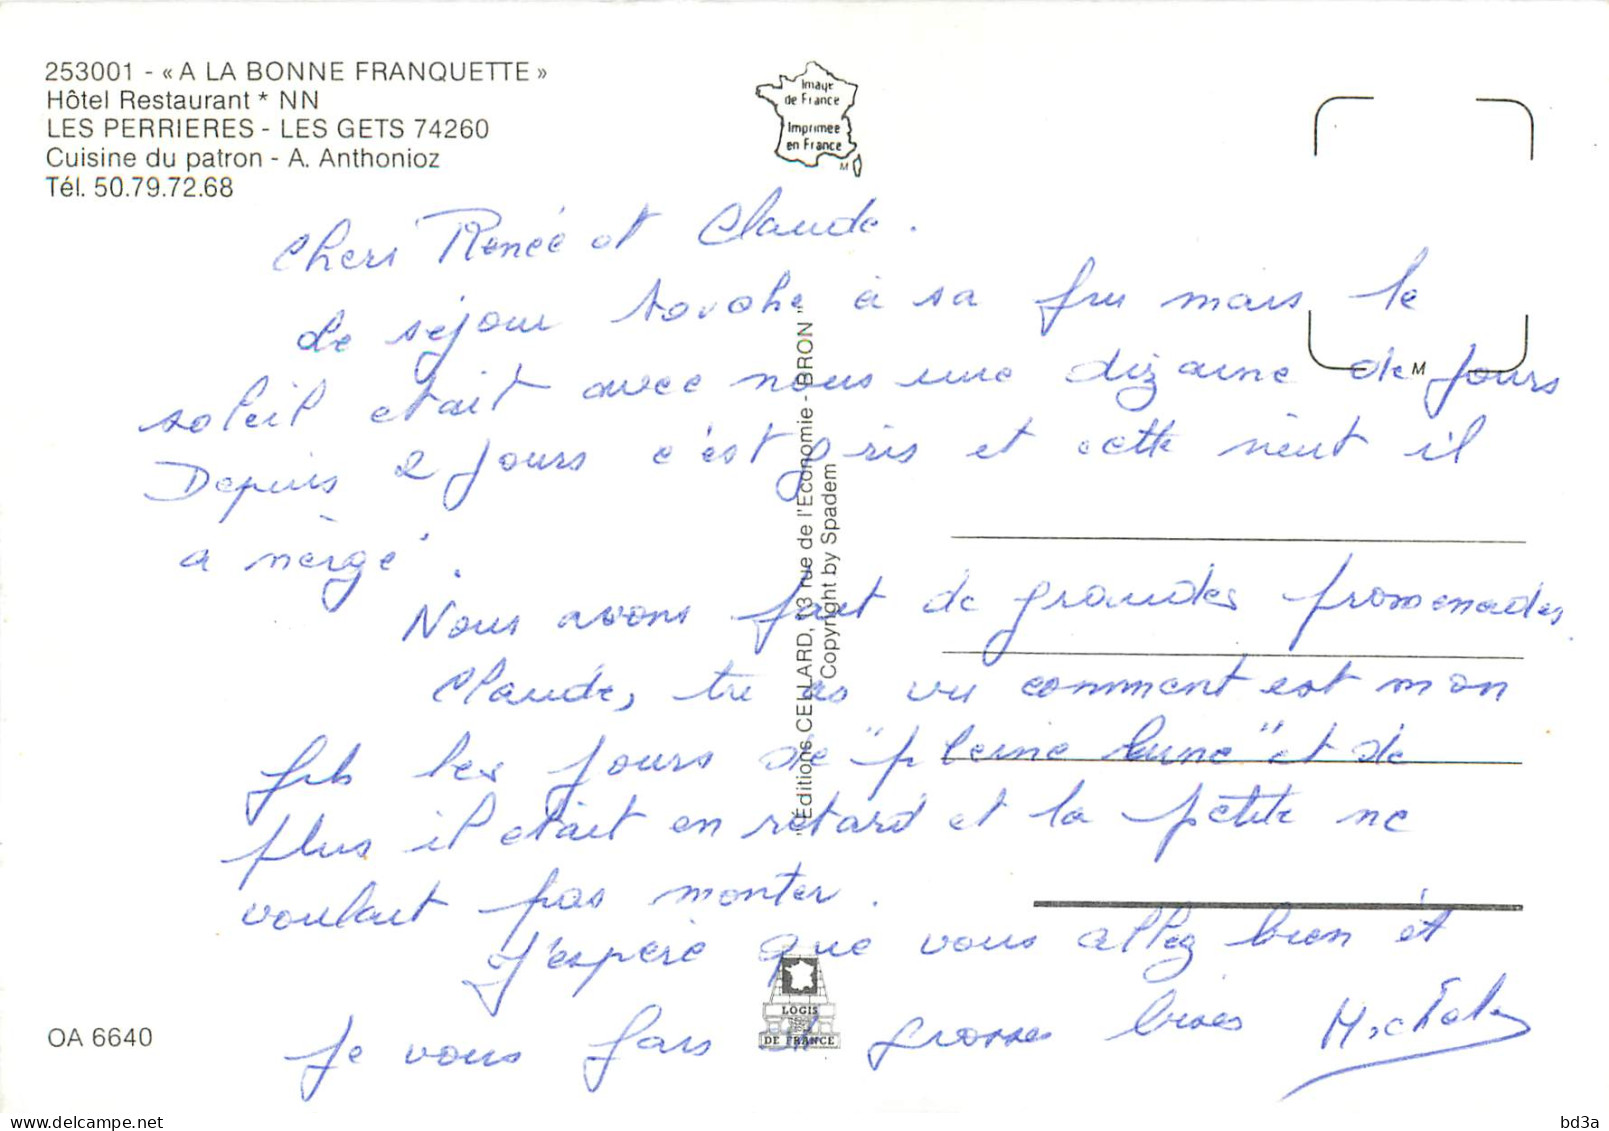 253001 - « A LA BONNE FRANQUETTE »
Hôtel Restaurant * NN
LES PERRIERES - LES GETS 74260
Cuisine du patron - A. Anthonioz
Tél. 50.79.72.68
Image
de France
Imprimée
en France
M
M
Chers Renée et Claude.
Le séjour touche à sa fin mais le
soleil etait avec nous une dizaine de jours
Depuis 2 jours c'est gris et cette nuit il
a neigé.
Nous avons fait de grandes promenades.
Claude, tu as vu comment est mon
fils les jours de "pleine lune" et de
plus il etait en retard et la petite ne
voulait pas monter.
J'espère que vous allez bien et
je vous fais de grosses bises
"Éditions CELLARD, 13 rue de l'Economie - BRON"
Copyright by Spadem
LOGIS
DE FRANCE
OA 6640
delcampe.net
bd3a